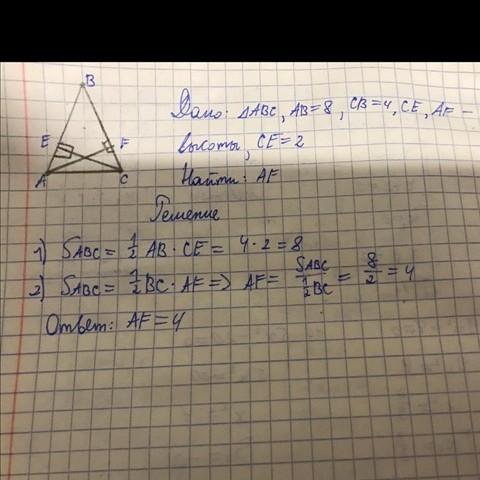 B
E
F
A
C
Дано: △ABC, AB=8, CB=4, CE, AF –
высоты, CE=2
Найти: AF
Решение
1) SABC = 1/2 AB · CE = 4 · 2 = 8
2) SABC = 1/2 BC · AF => AF = SABC / 1/2 BC = 8/2 = 4
Ответ: AF = 4